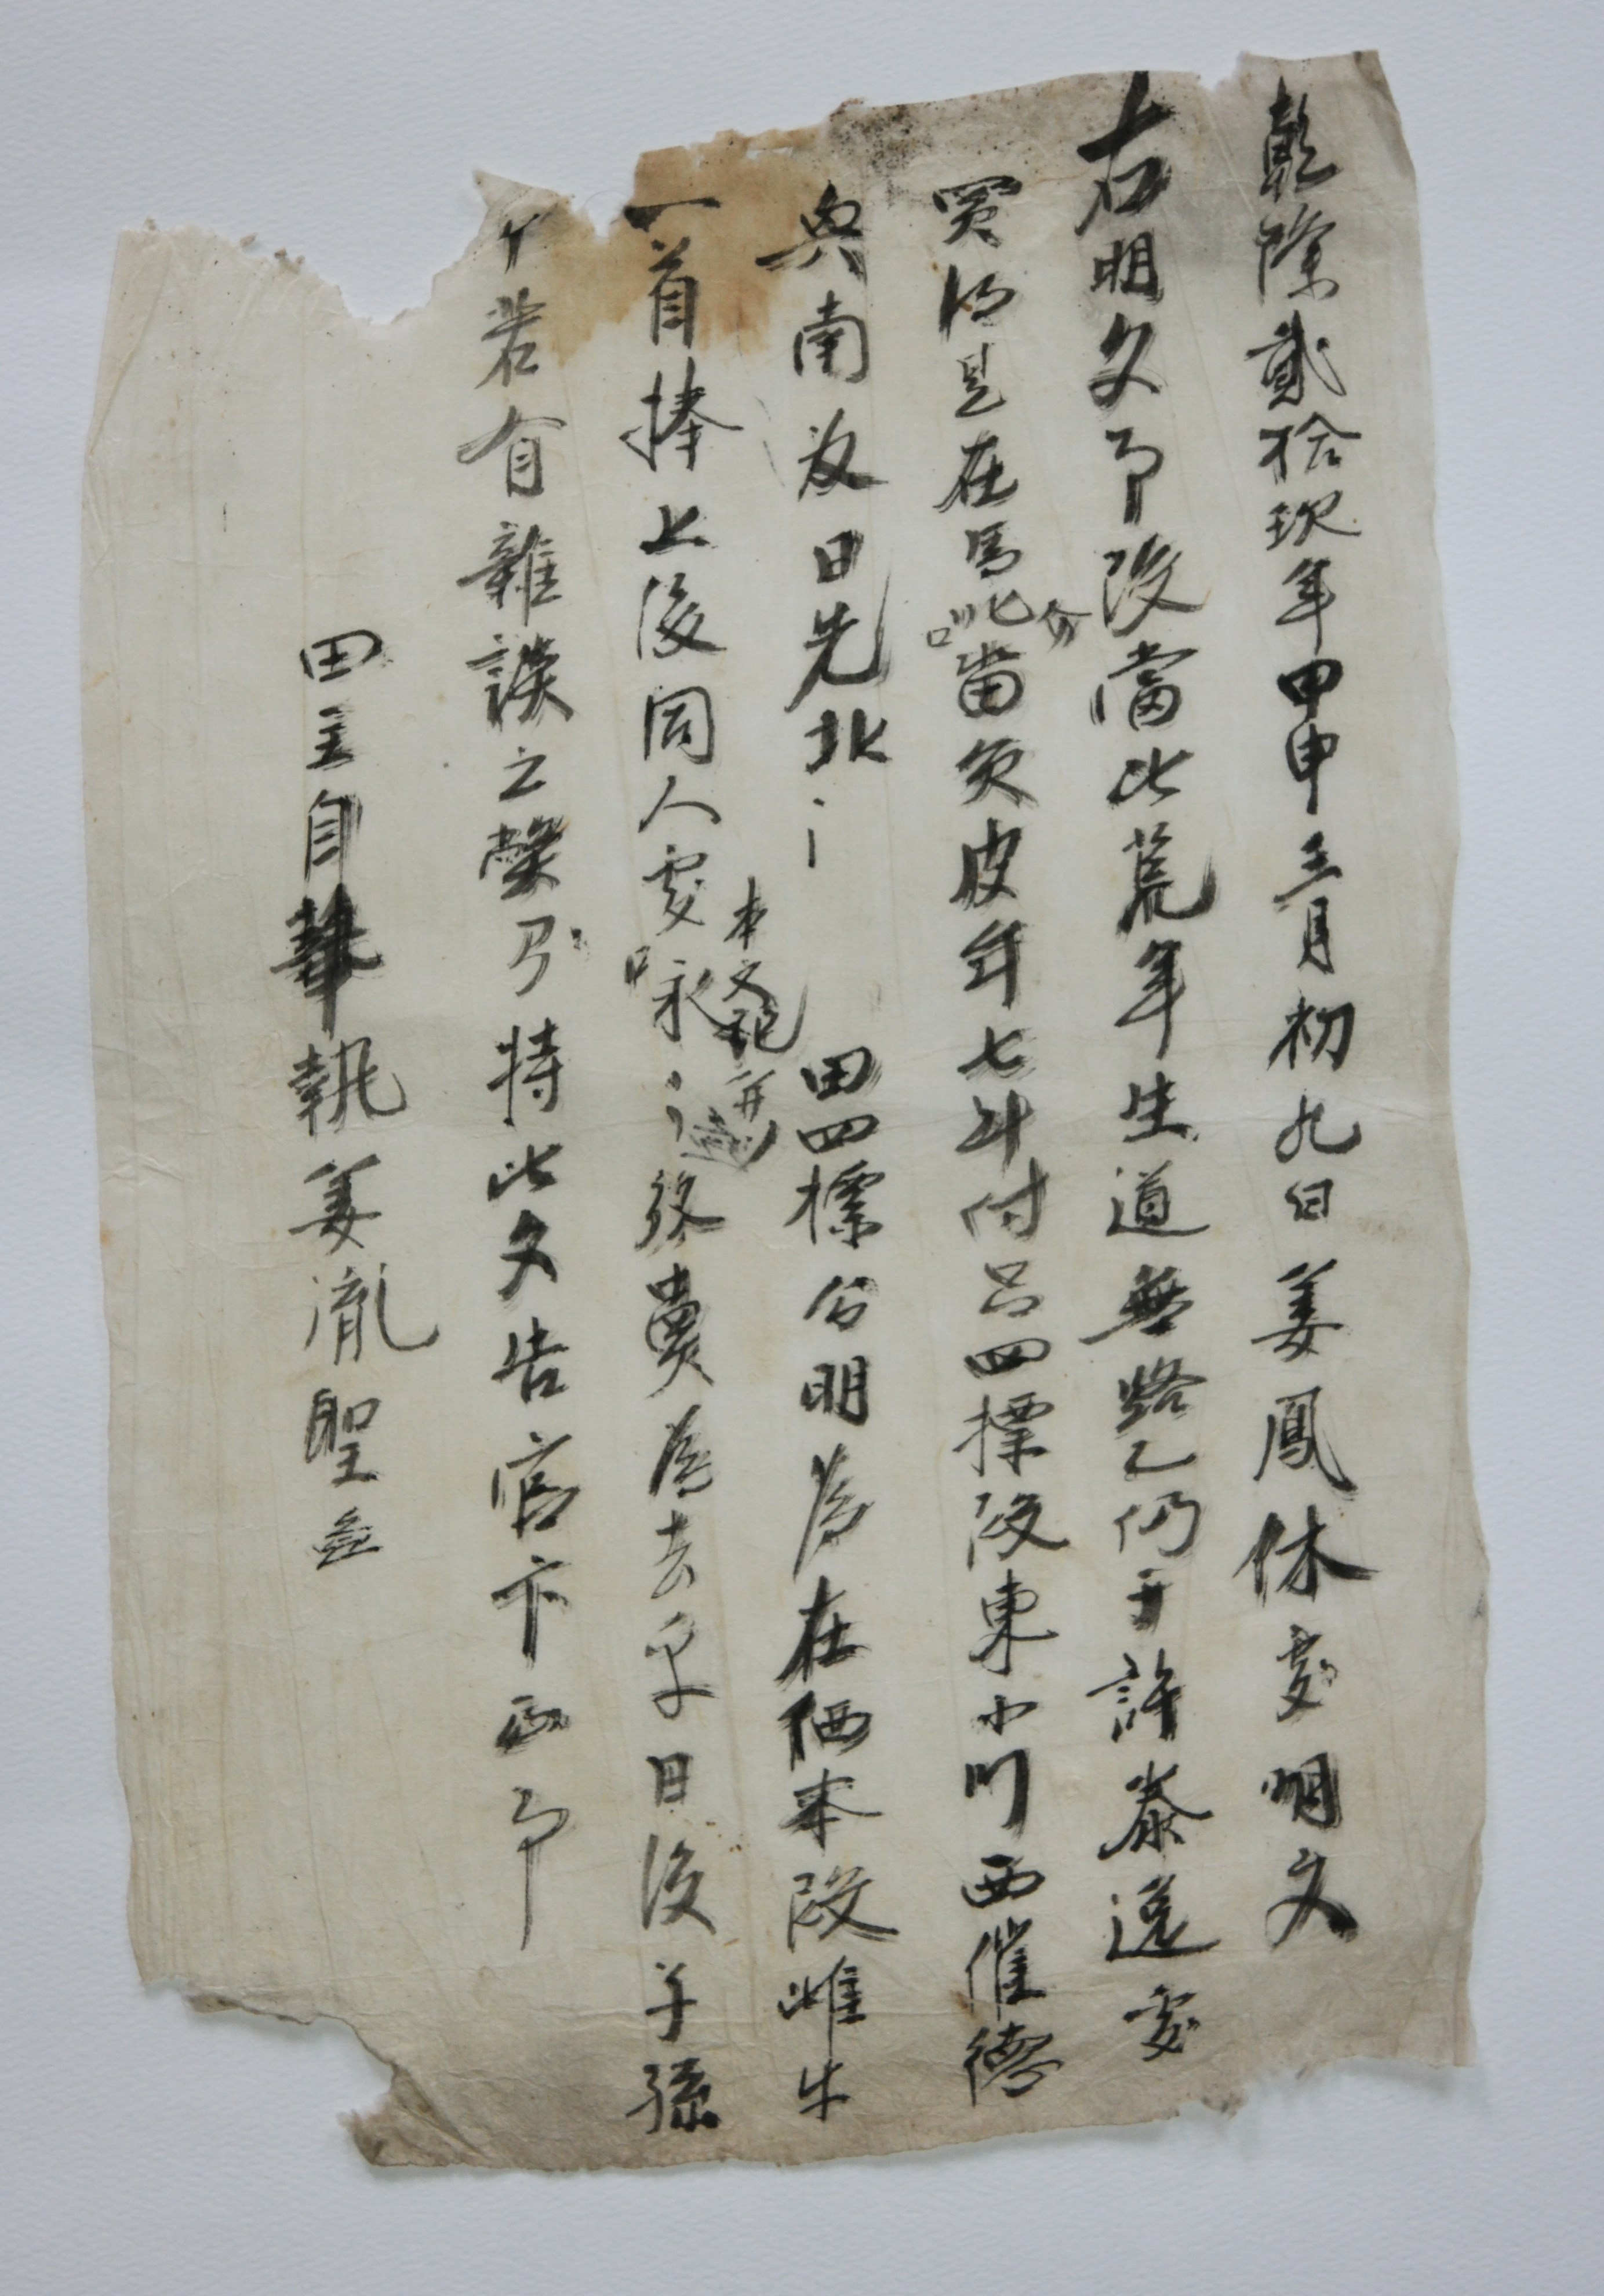 乾隆貳拾玖年甲申三月初九日姜鳳休處明文
右明文爲段當此荒年生道無路乙仍于許泰逸處
買得是在馬 畓 皮年七斗付只四標段東小川西催德
興南 日先北〻 田四標分明爲在価本段雌牛
一首捧上後同人處永〻 放賣爲去乎日後子孫
本文記幷
若有雜談之弊乃持此文告官卞正爲
田主自筆執姜胤聖